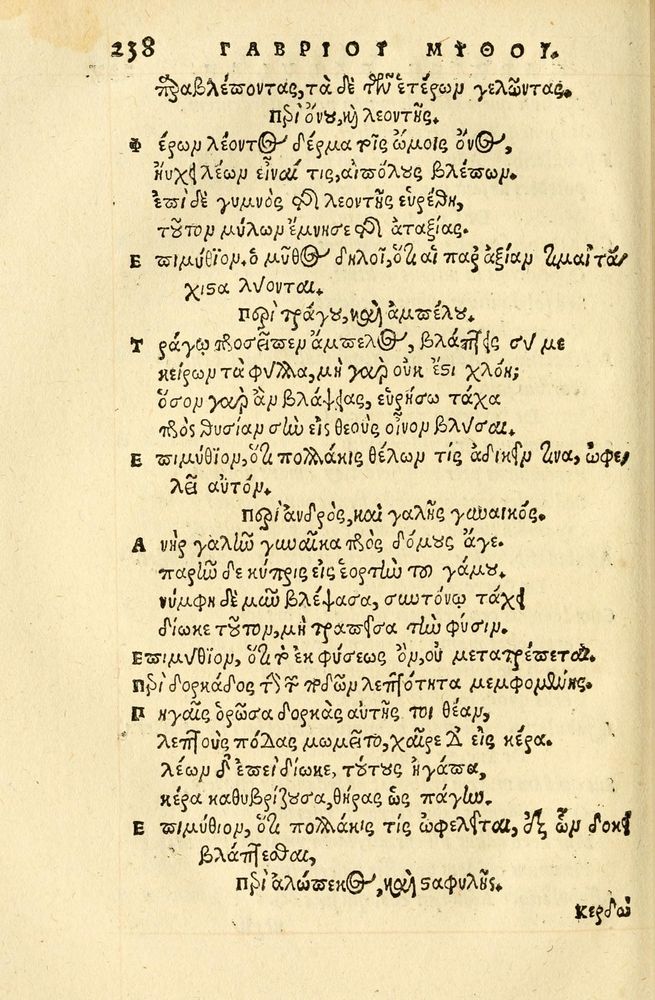 238 ΓΑΒΡΙΟΥ ΜΥΘΟΙ.
παραβλέποντας, τὰ δὲ τῶν ἑτέρων γελῶντας.
Περὶ ὄνου, καὶ λεοντῆς.
Φέρων λέοντος δέρμα τοῖς ὤμοις ὄνος,
ηὔχει λέων εἶναί τις, αἰπόλους βλέπων.
ἐπεὶ δὲ γυμνὸς τῆς λεοντῆς εὑρέθη,
τοῦτον μύλων ἔμνησε τῆς ἀταξίας.
Ἐπιμύθιον. ὁ μῦθος δηλοῖ, ὅτι αἱ παρ' ἀξίαν τιμαὶ τάχιστα λύονται.
Περὶ τράγου, καὶ ἀμπέλου.
Τράγῳ προσεῖπεν ἄμπελος, βλάπτεις σύ με
κείρων τὰ φύλλα, μὴ γὰρ οὐκ ἔστι χλόη;
ὅσον γὰρ ἂν βλάψῃς, εὑρήσω τάχα
πρὸς θυσίαν σὴν εἰς θεοὺς οἶνον βλύσαι.
Ἐπιμύθιον, ὅτι πολλάκις θέλων τίς ἀδικεῖν τινα, ὠφελεῖ αὐτόν.
Περὶ ἀνδρὸς, καὶ γαλῆς γυναικός.
Ἀνὴρ γαλῆν γυναῖκα πρὸς δόμους ἄγε.
παρῆν δὲ κύπρις εἰς ἑορτὴν τοῦ γάμου.
νύμφη δὲ μῦν βλέψασα, συντόνῳ τάχει
δίωκε τοῦτον, μὴ τραπεῖσα τὴν φύσιν.
Ἐπιμύθιον, ὅτι τὸ ἐκ φύσεως ὂν, οὐ μετατρέπεται.
Περὶ δορκάδος τὴν τῶν ποδῶν λεπτότητα μεμφομένης.
Πηγαῖς ὁρῶσα δορκὰς αὐτῆς τοι θέαν,
λεπτοὺς πόδας μωμεῖτο, χαῖρε δ' εἰς κέρα.
λέων δ' ἐπεὶ δίωκε, τούτους ἠγάπα,
κέρα καθυβρίζουσα, θῆρας ὡς πάγην.
Ἐπιμύθιον, ὅτι πολλάκις τίς ὠφελεῖται, ἐξ ὧν δοκεῖ
βλάπτεσθαι,
Περὶ ἀλώπεκος, καὶ σταφυλῆς.
κερδὼ